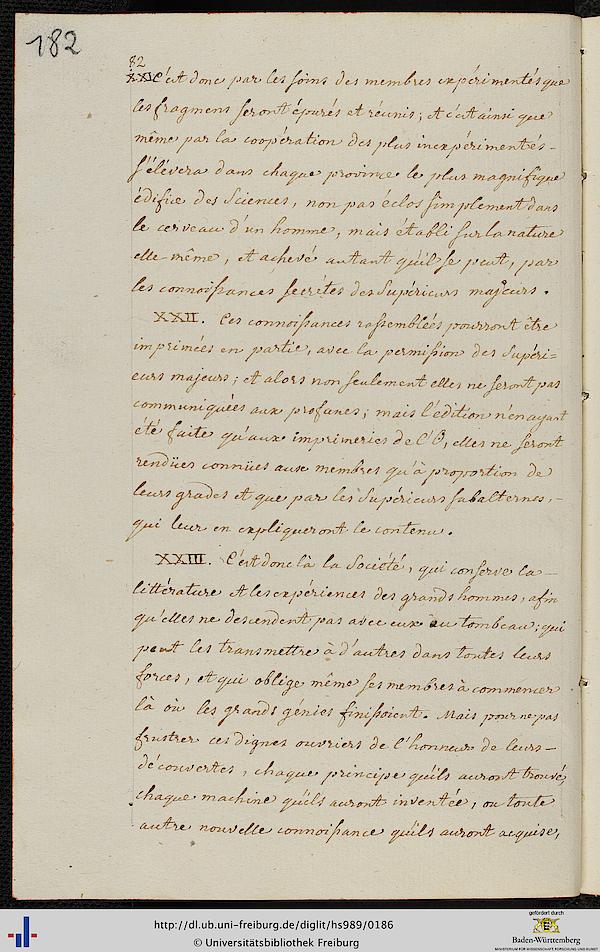 182
82
XXI C'est donc par les soins des membres expérimentés que
les fragmens seront épurés et réunis; et c'est ainsi que
même par la coopération des plus inexpérimentés -
s'élévera dans chaque province le plus magnifique
édifice des Sciences, non pas éclos simplement dans
le cerveau d'un homme, mais établi sur la nature
elle-même, et achevé autant qu'il se peut, par
les connoissances secrétes des Supérieurs majeurs.
XXII. Ces connoissances rassemblées pourront être
imprimées en partie, avec la permission des Supéri=
eurs majeurs; et alors non seulement elles ne seront pas
communiquées aux profanes; mais l'édition n'en ayant
été faite qu'aux imprimeries de l'O, elles ne seront
rendües connües aux membres qu'à proportion de
leurs grades et que par les Supérieurs subalternes, -
qui leur en expliqueront le contenu.
XXIII. C'est donc là la Société, qui conserve la -
littérature et les expériences des grands hommes, afin
qu'elles ne descendent pas avec eux au tombeau; qui
peut les transmettre à d'autres dans toutes leurs
forces, et qui oblige même ses membres à commencer
là où les grands génies finissoient. Mais pour ne pas
frustrer ces dignes ouvriers de l'honneur de leurs -
découvertes, chaque principe qu'ils auront trouvé,
chaque machine qu'ils auront inventée, ou toute
autre nouvelle connoissance qu'ils auront acquise,
http://dl.ub.uni-freiburg.de/diglit/hs989/0186
© Universitätsbibliothek Freiburg
gefördert durch
Baden-Württemberg
MINISTERIUM FÜR WISSENSCHAFT, FORSCHUNG UND KUNST